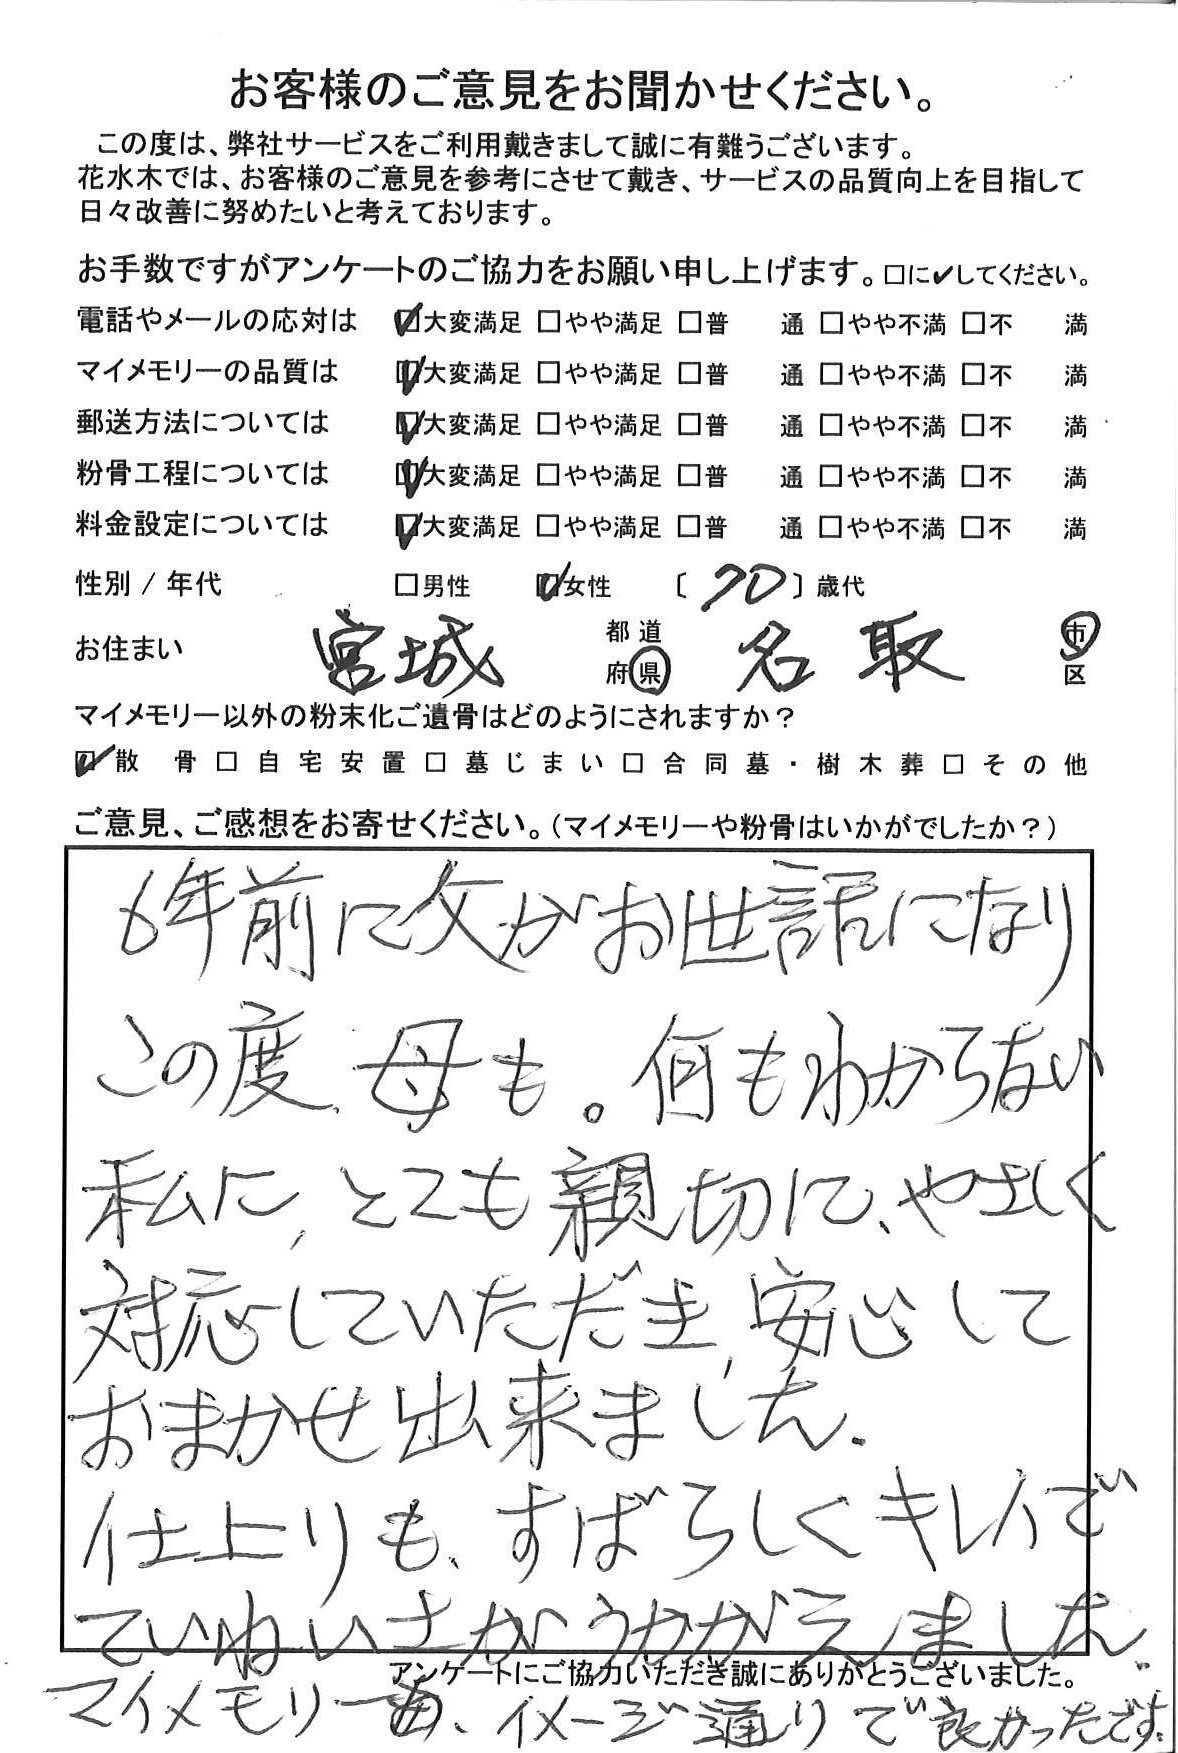 お客様のご意見をお聞かせください。
この度は、弊社サービスをご利用戴きまして誠に有難うございます。
花水木では、お客様のご意見を参考にさせて戴き、サービスの品質向上を目指して
日々改善に努めたいと考えております。
お手数ですがアンケートのご協力をお願い申し上げます。□に✔してください。
電話やメールの応対は ☑大変満足 □やや満足 □普 通 □やや不満 □不 満
マイメモリーの品質は ☑大変満足 □やや満足 □普 通 □やや不満 □不 満
郵送方法については ☑大変満足 □やや満足 □普 通 □やや不満 □不 満
粉骨工程については ☑大変満足 □やや満足 □普 通 □やや不満 □不 満
料金設定については ☑大変満足 □やや満足 □普 通 □やや不満 □不 満
性別 / 年代 □男性 ☑女性 〔 70 〕歳代
お住まい 宮城 都道府県 名取 市区
マイメモリー以外の粉末化ご遺骨はどのようにされますか？
☑散 骨 □自宅安置 □墓じまい □合同墓・樹木葬 □その他
ご意見、ご感想をお寄せください。(マイメモリーや粉骨はいかがでしたか？)
6年前に父がお世話になり
この度、母も。何もわからない
私に、とても親切に、やさしく
対応していただき、安心して
おまかせ出来ました。
仕上りも、すばらしくキレイで
ていねいさがうかがえました。
アンケートにご協力いただき誠にありがとうございました。
マイメモリーも、イメージ通りで良かったです。